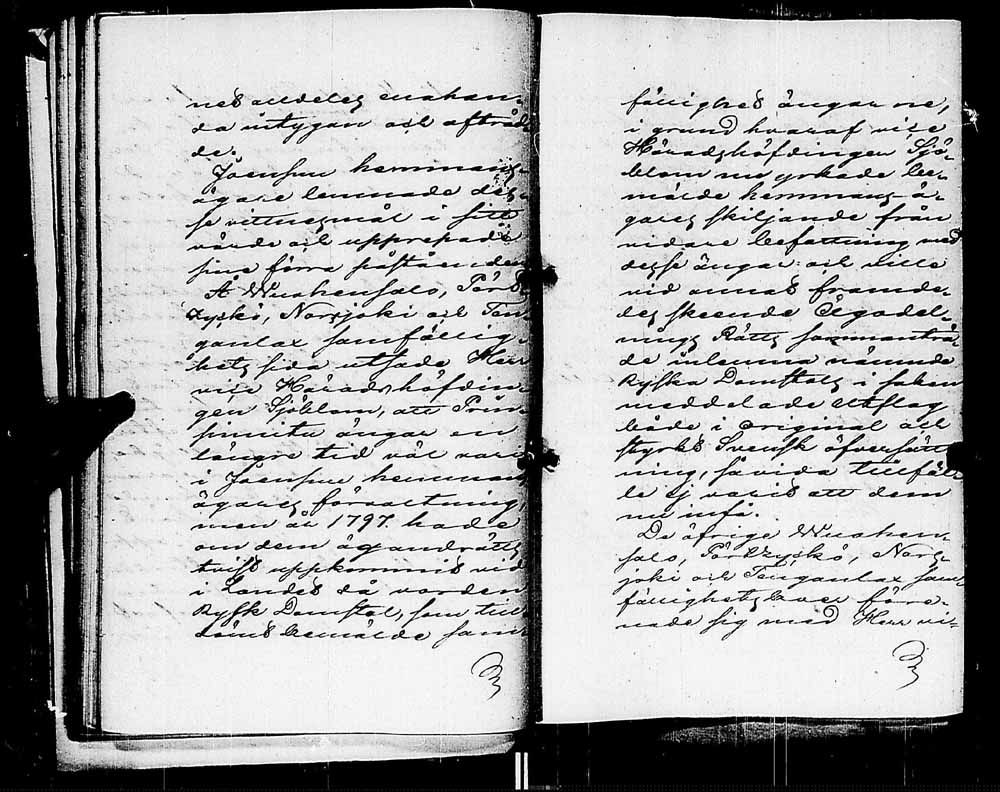 nes alldeles enahan-
da intygan och afträd
de.
Joensuu hemmans-
ägare lemnade des-
se vittnesmål i sitt
värde och upprepade
sine förra påståenden
Å Wuohensalo, Pörtz
Norsjoki och Ten-
ganlax samfällig-
hets sida utsade Herr
vice Häradshöfdin-
gen Sjöblom, att
ängar en
längre tid väl varit
i Joensuu hemmans
ägares förvaltning,
men år 1797. hade
om dem äganderätts
tvist uppkommit vid
i Landet då varden
Rysk Domstol, som till
dömt bemälde sam-
fällighet ängarne,
i grund hvaraf vice
Häradshöfdingen Sjö-
blom nu yrkade be-
mälde hemmans ä-
gares skiljande från
vidare befattning med
desse ängar och ville
vid annat framde-
les skeende Ägodel-
nings Rätts sammanträ-
de inlemna nämnde
Ryska Domstols i saken
meddelade Utslag
både i original och
styrkt Svensk öfversätt
ning, såvida tillfäl-
le ej varit att dem
nu
De öfrige Wuohen-
salo, Nors-
joki och Tenganlax sam-
fällighets före-
nade sig med Herr vi-